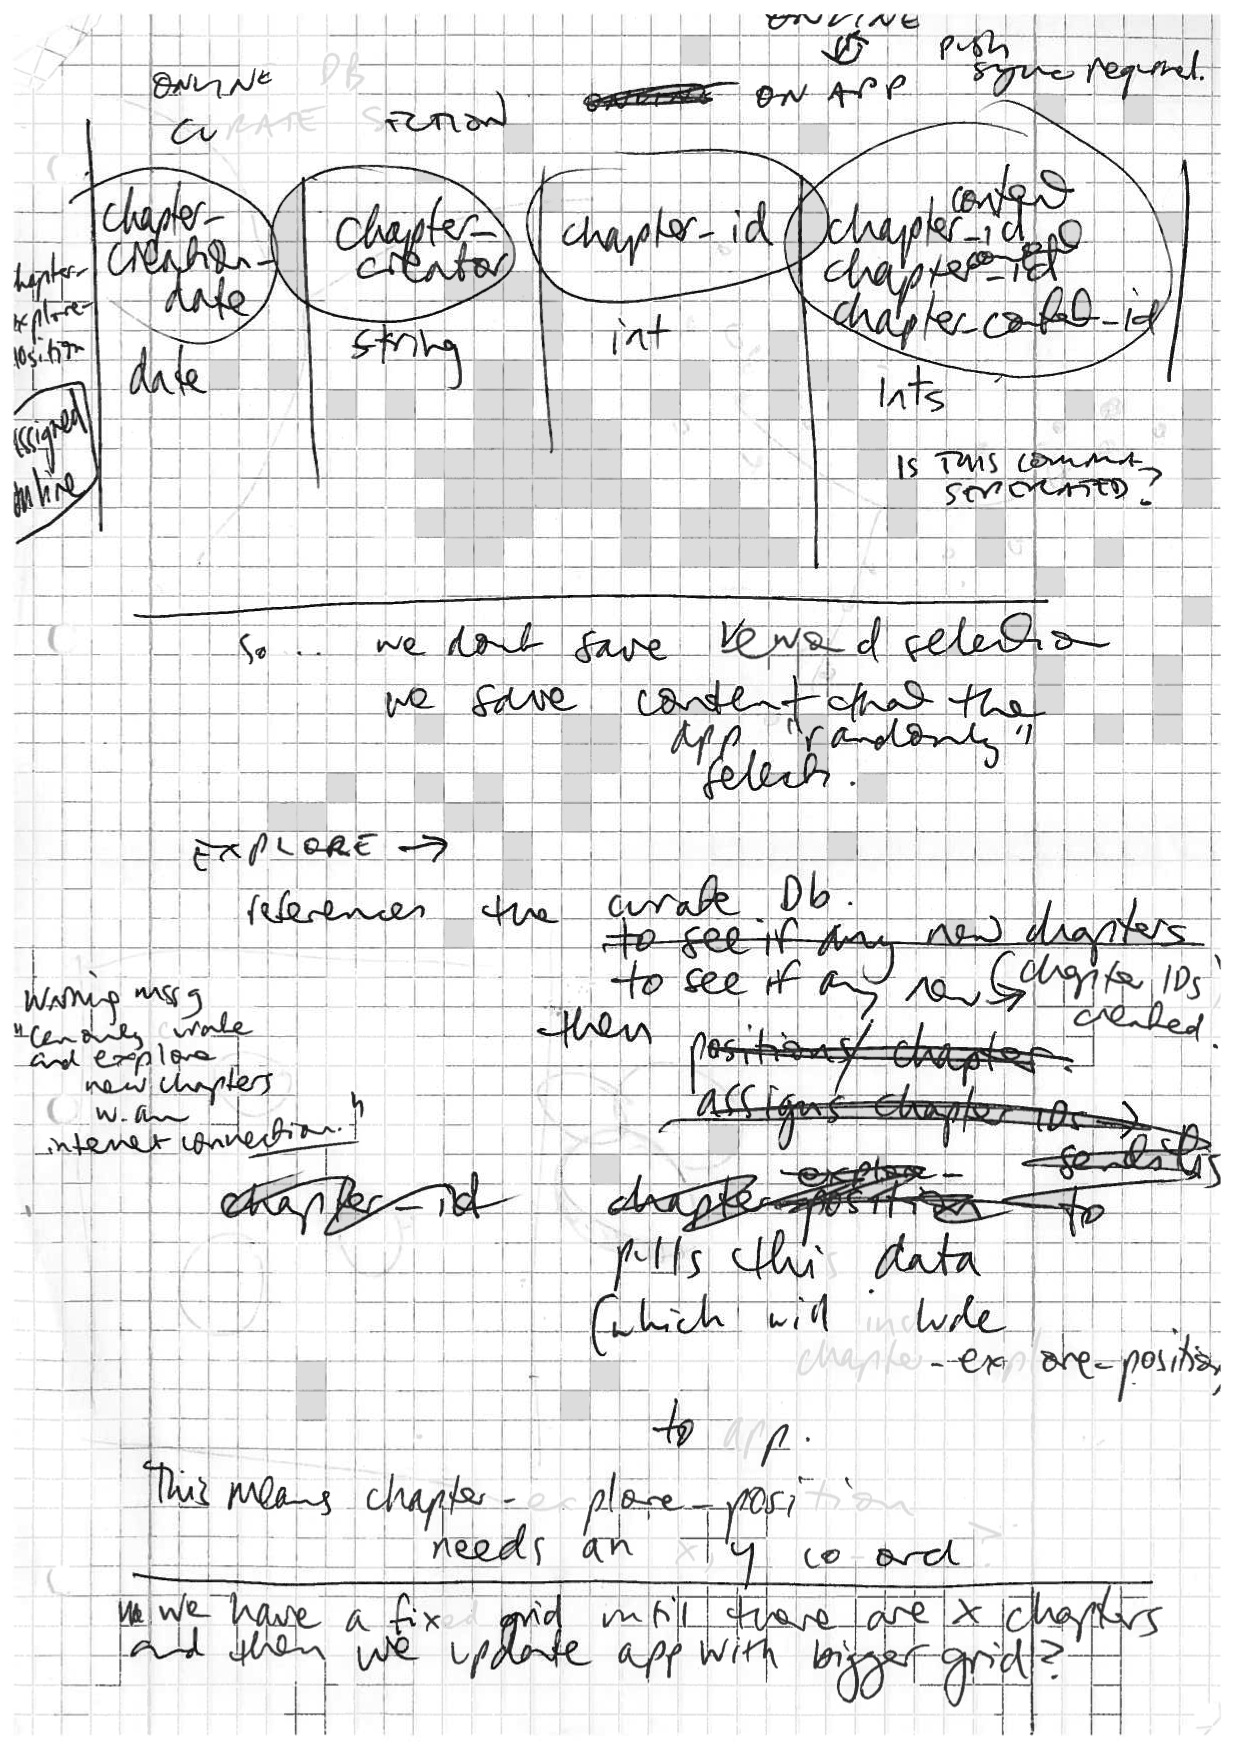 ONLINE
ONLINE DB
ON APP
push
sync required.
CURATE SECTION
chapter-
creation-
date
date
chapter-
creator
string
chapter-id
int
content
chapter-id
content
chapter-id
chapter-content-id
Ints
IS THIS COMMA
SEPERATED?
hapter-
xplore-
osition
ssigned
nline
so .. we dont save keyword selection
we save content that the
app "randomly"
selects.
EXPLORE →
references the curate Db.
to see if any new chapters
to see if any new chapter IDs
created.
then
positions/chapter.
assigns chapter IDs →
sends this
explore-
chapter-id chapter-position to
pulls this data
(which will include
chapter-explore-position)
to app.
Warning mssg
"can only curate
and explore
new chapters
w. an
internet connection."
This means chapter-explore-position
needs an x, y co-ord?
we have a fixed grid until there are x chapters
and then we update app with bigger grid?